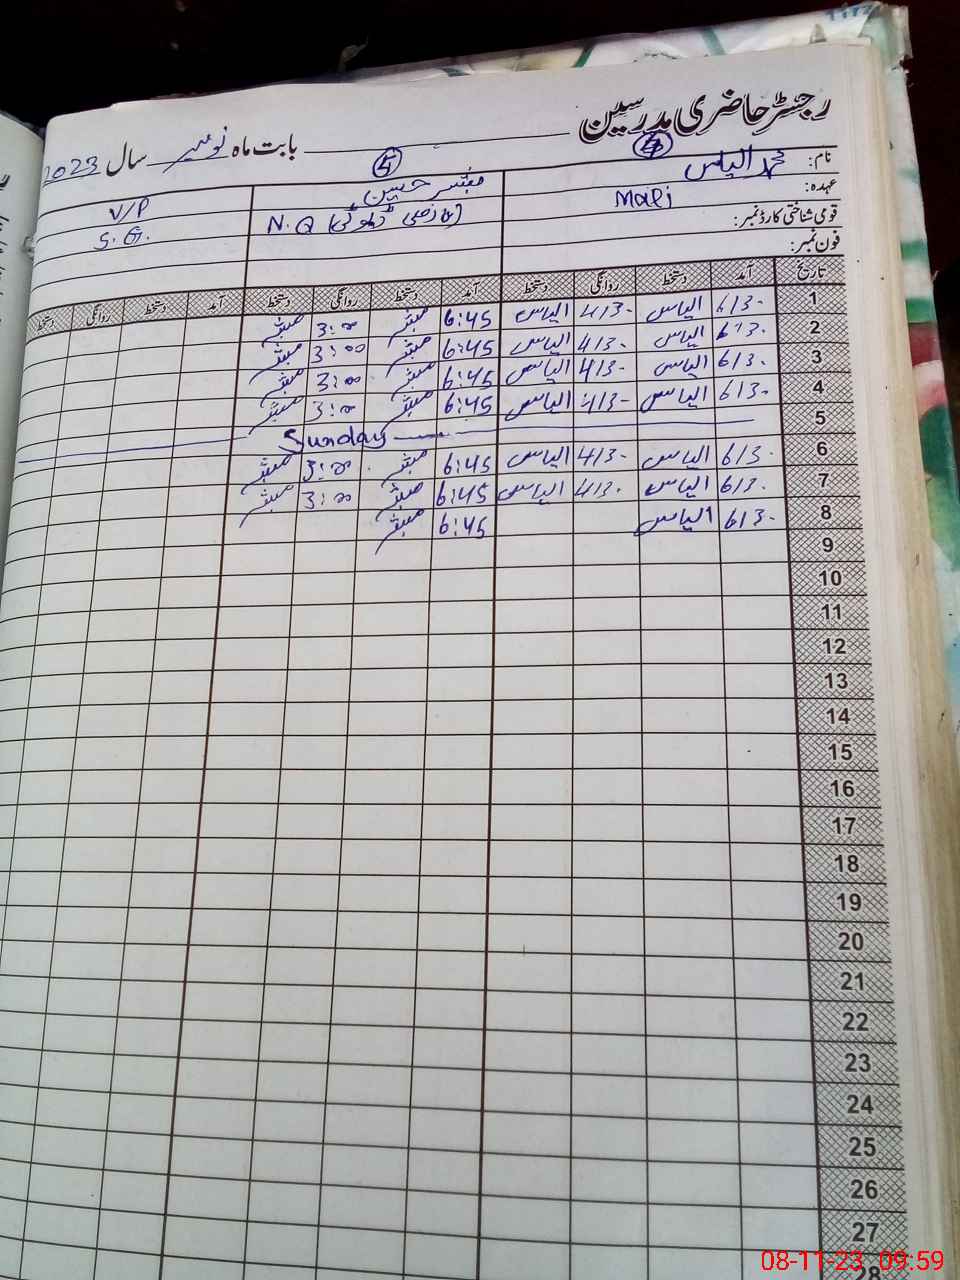 رجسٹر حاضری مدرسین
بابت ماہ نومبر سال 2023
نام: محمد الیاس 4 مبشر حسین 5 V/P
عہدہ: Mali N.Q (عارضی ڈیوٹی) S.G.
قومی شناختی کارڈ نمبر:
فون نمبر:
تاریخ آمد دستخط روانگی دستخط آمد دستخط روانگی دستخط آمد دستخط روانگی دستخط
1 6/30 الیاس 4/30 الیاس 6:45 مبشر 3:00 مبشر
2 6/30 الیاس 4/30 الیاس 6:45 مبشر 3:00 مبشر
3 6/30 الیاس 4/30 الیاس 6:45 مبشر 3:00 مبشر
4 6/30 الیاس 4/30 الیاس 6:45 مبشر 3:00 مبشر
5 Sunday
6 6/30 الیاس 4/30 الیاس 6:45 مبشر 3:00 مبشر
7 6/30 الیاس 4/30 الیاس 6:45 مبشر 3:00 مبشر
8 6/30 الیاس 6:45 مبشر
9
10
11
12
13
14
15
16
17
18
19
20
21
22
23
24
25
26
27
28
08-11-23 09:59